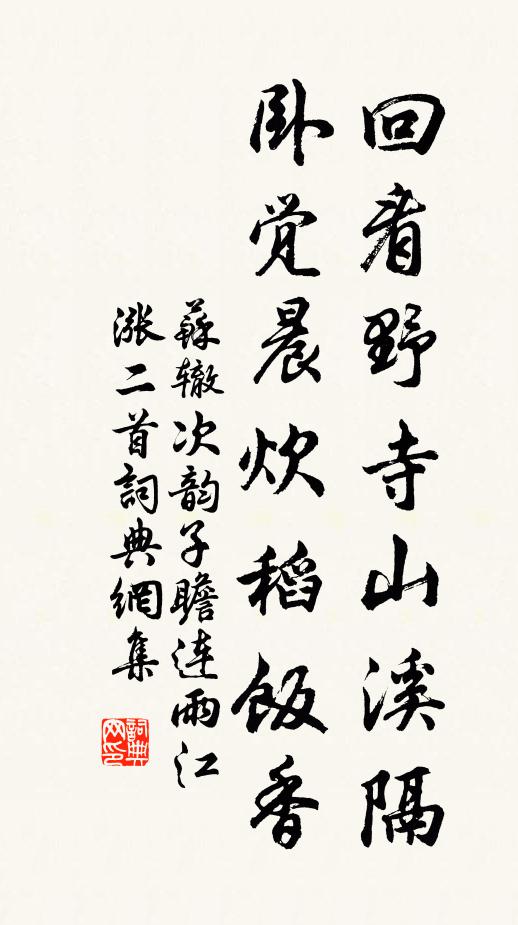 回看野寺山溪隔
卧觉晨炊稻飯香
蘇辙次韵子瞻连雨江
漲二首詞典網集
詞典网印